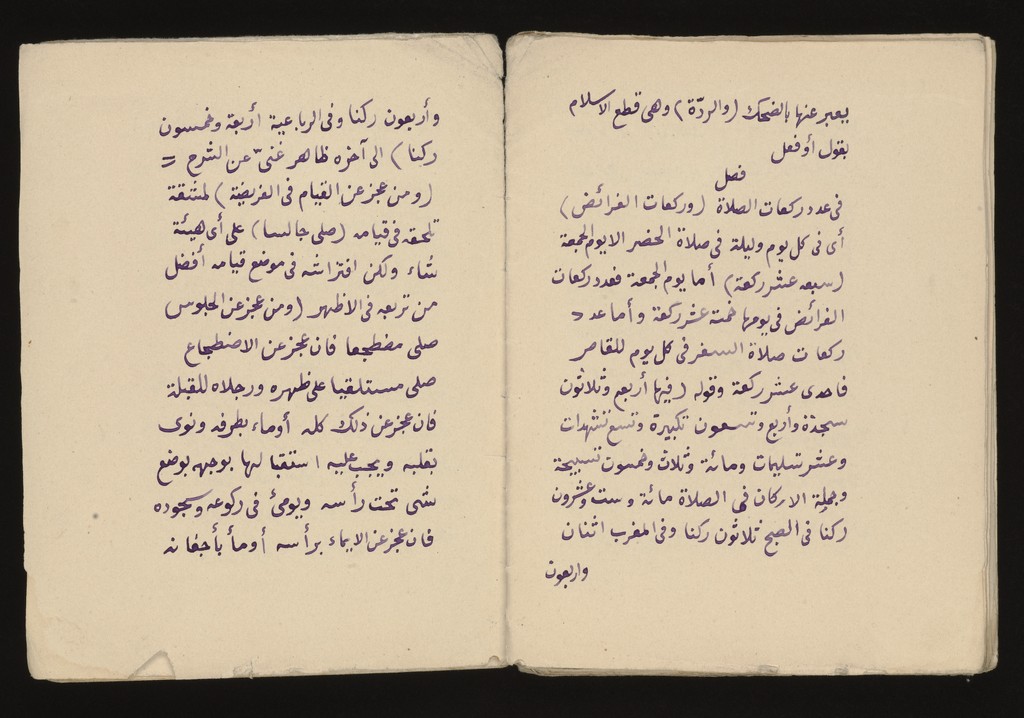 يعبر عنها بالضحك (والردّة) وهى قطع الاسلام
بقول أو فعل
فصل
فى عدد ركعات الصلاة (وركعات الفرائض)
أى فى كل يوم وليلة فى صلاة الحضر الا يوم الجمعة
(سبعه عشر ركعة) أما يوم الجمعة فعدد ركعات
الفرائض فى يومها خمسة عشر ركعة وأما عدد
ركعات صلاة السفر فى كل يوم للقاصر
فاحدى عشر ركعة وقوله (فيها أربع وثلاثون
سجدة وأربع وتسعون تكبيرة وتسع تشهدات
وعشر تسليمات ومائة وثلاث وخمسون تسبيحة
وجملة الاركان فى الصلاة مائة وست وعشرون
ركنا فى الصبح ثلاثون ركنا وفى المغرب اثنان
واربعون
وأربعون ركنا وفى الرباعية أربعة وخمسون
ركنا) الى آخره ظاهر غنىّ عن الشرح =
(ومن عجز عن القيام فى الفريضة) لمشقة
تلحقه فى قيامه (صلى جالسا) على أى هيئة
شاء ولكن افتراشه فى موضع قيامه أفضل
من تربعه فى الاظهر (ومن عجز عن الجلوس)
صلى مضطجعا فان عجز عن الاضطجاع
صلى مستلقيا على ظهره ورجلاه للقبلة
فان عجز عن ذلك كله أوماء بطرفه ونوى
بقلبه ويجب عليه استقبالها بوجهه بوضع
شىء تحت رأسه ويومئ فى ركوعه وسجوده
فان عجز عن الايماء برأسه أومأ بأجفانه